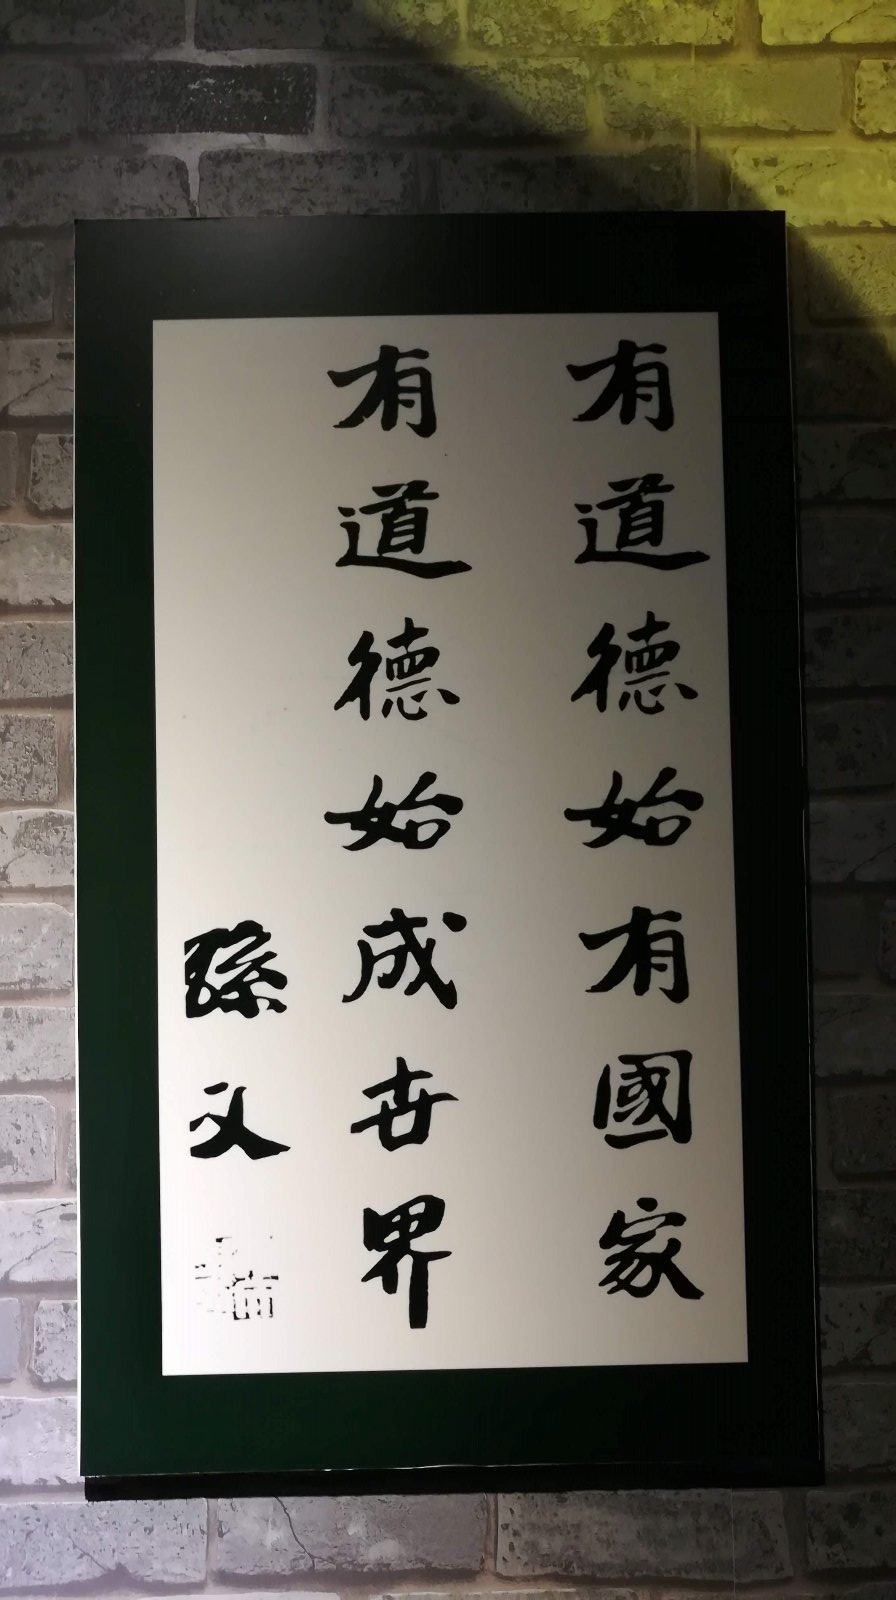 有道德始有國家
有道德始成世界
孫文